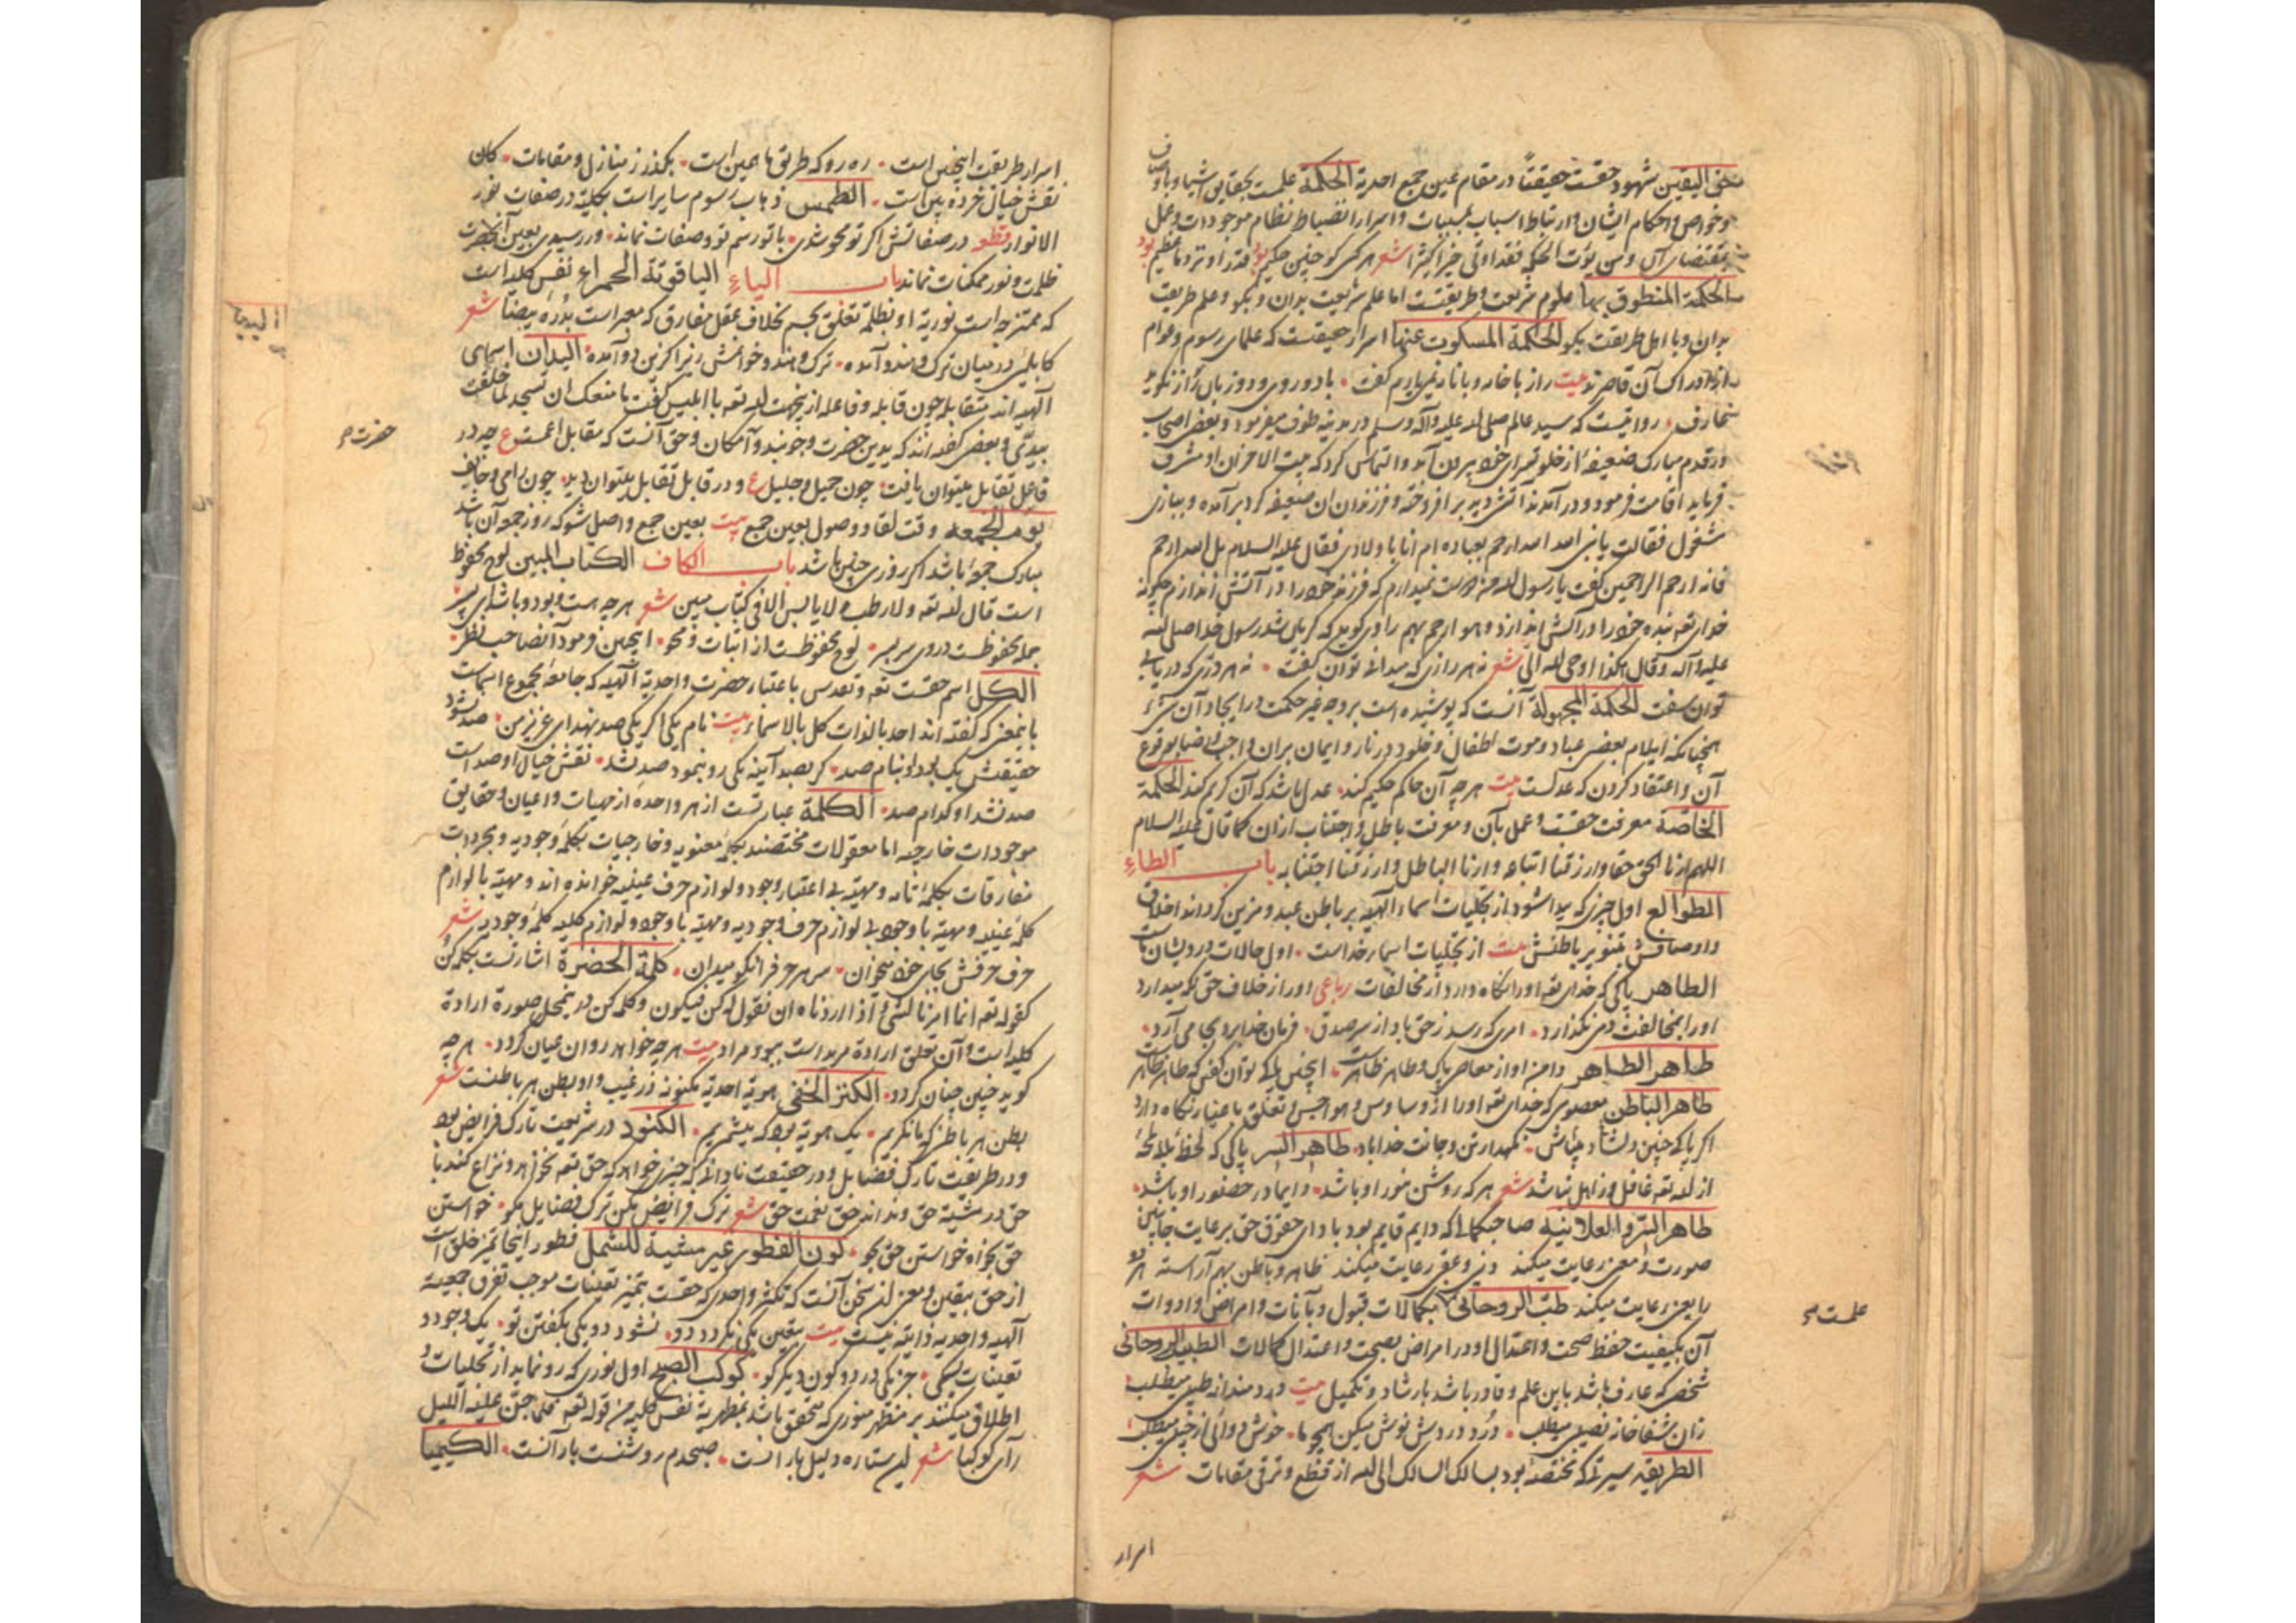 حق الیقین شهود حقست حقیقتاً در مقام عین جمع احدیة الحکمة علمست بحقایق اشیا و باوصاف
و خواص و احکام ایشان و ارتباط اسباب بمسببات و اسرار انضباط نظام موجودات و عمل
بمقتضای آن و من یؤت الحکمة فقد اوتی خیرا کثیرا شعر هر کس کو چنین حکیم بود قدر او نزد ما عظیم بود
الحکمة المنطوق بها علوم شریعت و طریقتست اما علم شریعت بدان و بگو و علم طریقت
بدان و با اهل طریقت بگو الحکمة المسکوت عنها اسرار حقیقتست که علمای رسوم و عوام
از ادراک آن قاصرند بیت راز با خار و با نار نمی یارم گفت
روایتست که سید عالم صلی الله علیه و آله و سلم در مدینه طوف میفرمود و بعضی اصحاب
در قدم مبارک ضعیفه از خلوتسرای خود بیرون آمد و التماس کرد که بیت الاحزان او مشرف
فرماید اقامت فرمود و در آمدند آتشی دید بر افروخته و فرزندان ان ضعیفه گرد بر آمده و ببازی
مشغول فقالت یا نبی الله الله ارحم بعباده ام انا باولادی فقال علیه السلام بل الله ارحم
فانه ارحم الراحمین گفت یا رسول الله من دوست نمیدارم که فرزند خود را در آتش اندازم چگونه
خدای تعه بنده خود را در آتش اندازد و هو ارحم بهم راوی گوید که گریان شد رسول خدا صلی الله
علیه و آله و قال هکذا اوحی الله الی شعر نه هر رازی که میدانی توان گفت نه هر دری که دریابی
توان سفت الحکمة المجهولة آنست که پوشیده است بر وجه غیر حکمت در ایجاد آن شیء
همچنانکه ایلام بعضی عباد و موت اطفال و خلود در نار و ایمان بران واجب الرضا بوقوع
آن و اعتقاد کردن که عدلست بیت هر چه آن حاکم حکیم کند عدل باشد که آن کریم کند الحکمة
الجامعة معرفت حقست و عمل بآن و معرفت باطل و اجتناب ازان کما قال علیه السلام
اللهم ارنا الحق حقا و ارزقنا اتباعه و ارنا الباطل و ارزقنا اجتنابه باب الطاء
الطوالع اول چیزی که پیدا شود از تجلیات اسماء الهیه بر باطن عبد و مزین گرداند اخلاق
و اوصافش بتنویر باطنش بیت از تجلیات اسماء خداست اول حالات درویشان ماست
الطاهر پاکی که خدای تعه او را نگاه دارد از مخالفات رباعی او را ز خلاف حق نگه میدارد
او را بمخالفت دمی نگذارد امری که رسد ز حق باو از سر صدق فرمان خدا برد بجا می آرد
طاهر الظاهر دامن او از معاصی پاک و طاهر ظاهرست اینچنین پاکی توان گفتن که طاهر ظاهرست
طاهر الباطن معصومی که خدای تعه او را از وساوس و هواجس و تعلق باغیار نگاه دارد
اگر پاکی چنین دلشاد میباش نگهدار تن و جانت خدا باد طاهر السر پاکی که لحظة بلا لمحة
از الله تعه غافل و ذاهل نباشد شعر هر که روشن بنور او باشد دایما در حضور او باشد
طاهر السر و العلانیه صاحبکمالی که دایم قایم بود بادای حقوق حق برعایت جانبین
صورت و معنی رعایت میکند دنیی و عقبی رعایت میکند ظاهر و باطن بهم آراسته هر دو
را یعنی رعایت میکند طب الروحانی بکمالات قبول و بآفات و امراض و ادوات
آن بکیفیت حفظ صحت و اعتدال او در امراض بصحت و اعتدال کمالات الطبیب الروحانی
شخصی که عارف باشد باین علم و قادر باشد بارشاد و تکمیل بیت دردمندانه طبیبی میطلب
زان شفاخانه نصیبی میطلب دُرد دردش نوش میکن همچو ما خوش دوائی از حبیبی میطلب
الطریقه سیرتی که مختصه بود بسالک السالک الی الله از قطع و ترقی مقامات شعر
اسرار
علمست صح
اسرار طریقت اینچنین است ره رو که طریق ما همین است بگذر ز منازل و مقامات کان
نقش خیال خرده بین است الطمس ذهاب رسوم سایر است بکلیة در صفات نور
الانوار قطعه در صفاتش اگر تو محو شدی با تو رسم تو و صفات نماند ور رسیدی بعین آنحضرت
ظلمت و نور ممکنات نماند باب الیاء الیاقوتة الحمراء نفس کلیه است
که ممتزجه است نوریة او بظلمة تعلق بجسم بخلاف عقل مفارق که معبر است بدُرّه بیضا شعر
کابلیی در میان ترک و هندو آمده ترک و هندو خوانمش زیرا کزین دو آمده الیدان اسمای
الهیه اند متقابله چون قابله و فاعله ازینجهت الله تعه با ابلیس گفت ما منعک ان تسجد لما خلقت
بیدی و بعضی گفته اند که یدین حضرت وجوبند و امکان و حق آنست که مقابل اعمست ع چه در
فاعل تقابل میتوان یافت چون جمیل و جلیل ع و در قابل تقابل میتوان دید چون راجی و خایف
یوم الجمعه وقت لقا و وصول بعین جمع بیت بعین جمع واصل شو که روز جمعه آن باشد
مبارک جمعۀ باشد اگر روزی چنین باشد باب الکاف الکتاب المبین لوح محفوظ
است قال الله تعه و لا رطب و لا یابس الا فی کتاب مبین شعر هر چه هست و بود و باشد ای پسر
جمله محفوظست در وی سر بسر لوح محفوظست از اثبات و محو اینچنین فرمود آن صاحب نظر
الکل اسم حقست تعه و تقدس باعتبار حضرت واحدیة الهیه که جامعه مجموع اسماست
باینمعنی که گفته اند احد بالذات کل بالاسماء بیت نام یکی اگر یکی صد نهد ای عزیز من صد نشود
حقیقتش یک بود او بنام صد گر بصد آینه یکی رو بنمود صد نشد نقش خیال او صد است
صد نشد او کدام صد الکلمة عبارتست از هر واحدۀ از مهیات و اعیان و حقایق
موجودات خارجیه اما معقولات مختصند بکلمه معنویه و خارجیات بکلمه وجودیه و مجردات
مفارقات بکلمه تامه و مهیّة بی اعتبار وجود و لوازم حرف عینیه خوانده اند و مهیّة با لوازم
کلمه عینیه و مهیّة با وجود بی لوازم حرف وجودیه و مهیّة با وجود و لوازم کلیه کلمه وجودیه شعر
حرف حرفش بجای خود میخوان سر هر حرف را نکو میدان کلمة الحضرة اشارتست بکلمه کن
کقوله تعه انما امرنا لشیء اذا اردناه ان نقول له کن فیکون و کلمه کن در ینمحل صورة ارادة
کلیه است و آن تعلق ارادة مرید است بوجود مراد بیت هر چه خواهد روان عیان گردد هر چه
گوید چنین چنان گردد الکنز الخفی هویة احدیة مکنونه در غیب و او بطن هر باطنست شعر
بطن هر باطن که بانگریم یک هویة بود که میشمریم الکنود در شریعت تارک فرایض بود
و در طریقت تارک فضایل و در حقیقت نادانی که چیزی خواهد که حق تعه نخواهد و نزاع کند با
حق در مشیّة حق و نداند حق نعمت حق شعر ترک فرایض مکن ترک فضایل مگو خواستن
حق بخواه خواستن حق بجو کون الفطور غیر مشیة للشمل فطور اینجا تمیز خلق است
از حق بتعین و معنی این سخن آنست که تکثر واحدی که حقست بتمیز تعینات موجب تفرق جمعیة
الهیه و احدیه ذاتیة نیست بیت بتعین یکی نگردد دو نشود دو یکی بگفتن تو یک وجود و
تعینات یکی جز یکی در دو کون دیگر گو کوکب الصبح اول نوری که رو نماید از تجلیات و
اطلاق میکنند بر مظهر منوری که متحقق باشد بمظهریة نفس کلیه من قوله تعه فلما جن علیه اللیل
رآی کوکبا شعر این ستاره دلیل یار است صبحدم روشنست یار آنست الکیمیا
حضرت صح